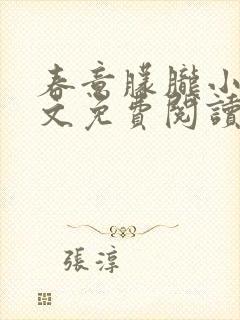 春意朦朧小
文免費閱讀
張淳